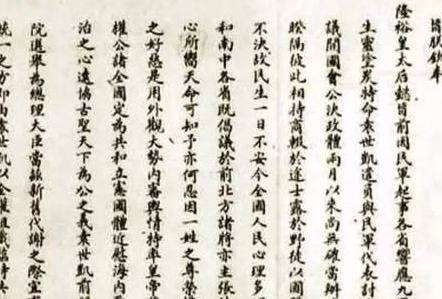 旨朕欽奉
隆裕皇太后懿旨前因民軍起事各省響應九
生靈塗炭特命袁世凱遣員與民軍代表討
議開國會公決政體兩月以來尚無確當辦
暌隔彼此相持商輟於途士露於野徒以國
不決故民生一日不安今全國人民心理多
和南中各省既倡議於前北方諸將亦主張
心所嚮天命可知予亦何忍因一姓之尊榮
之好惡是用外觀大勢內審輿情特率皇帝
權公諸全國定為共和立憲國體近慰海內
治之心遠協古聖天下為公之義袁世凱前
院選舉為總理大臣當茲新舊代謝之際宜
統一之方即由袁世凱以全權組織臨時共